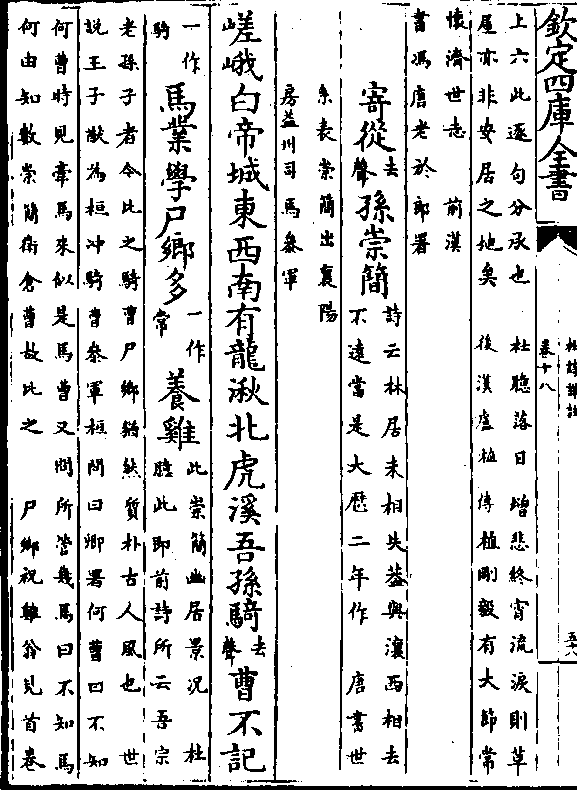 欽定四庫全書
杜詩詳註
卷十八
上六此逐句分承也 杜臆落日增悲終宵流淚則草
屋亦非安居之地矣 後漢盧植傳植剛毅有大節常
懷濟世志 前漢
書馮唐老於郎署
寄從去聲孫崇簡
詩云林居未相失蓋與瀼西相去
不遠當是大歷二年作 唐書世
系表崇簡出襄陽
房益州司馬參軍
嵯峨白帝城東西南有龍湫北虎溪吾孫騎去聲曹不記
一作騎馬業學尸鄉多一作常養雞
此崇簡幽居景況 杜
臆此即前詩所云吾宗
老孫子者今比之騎曹尸鄉猶然質朴古人風也 世
說王子猷為桓冲騎曹參軍桓問曰卿署何曹曰不知
何曹時見牽馬來似是馬曹又問所管幾馬曰不知馬
何由知數崇簡衛倉曹故比之 尸鄉祝雞翁見首卷